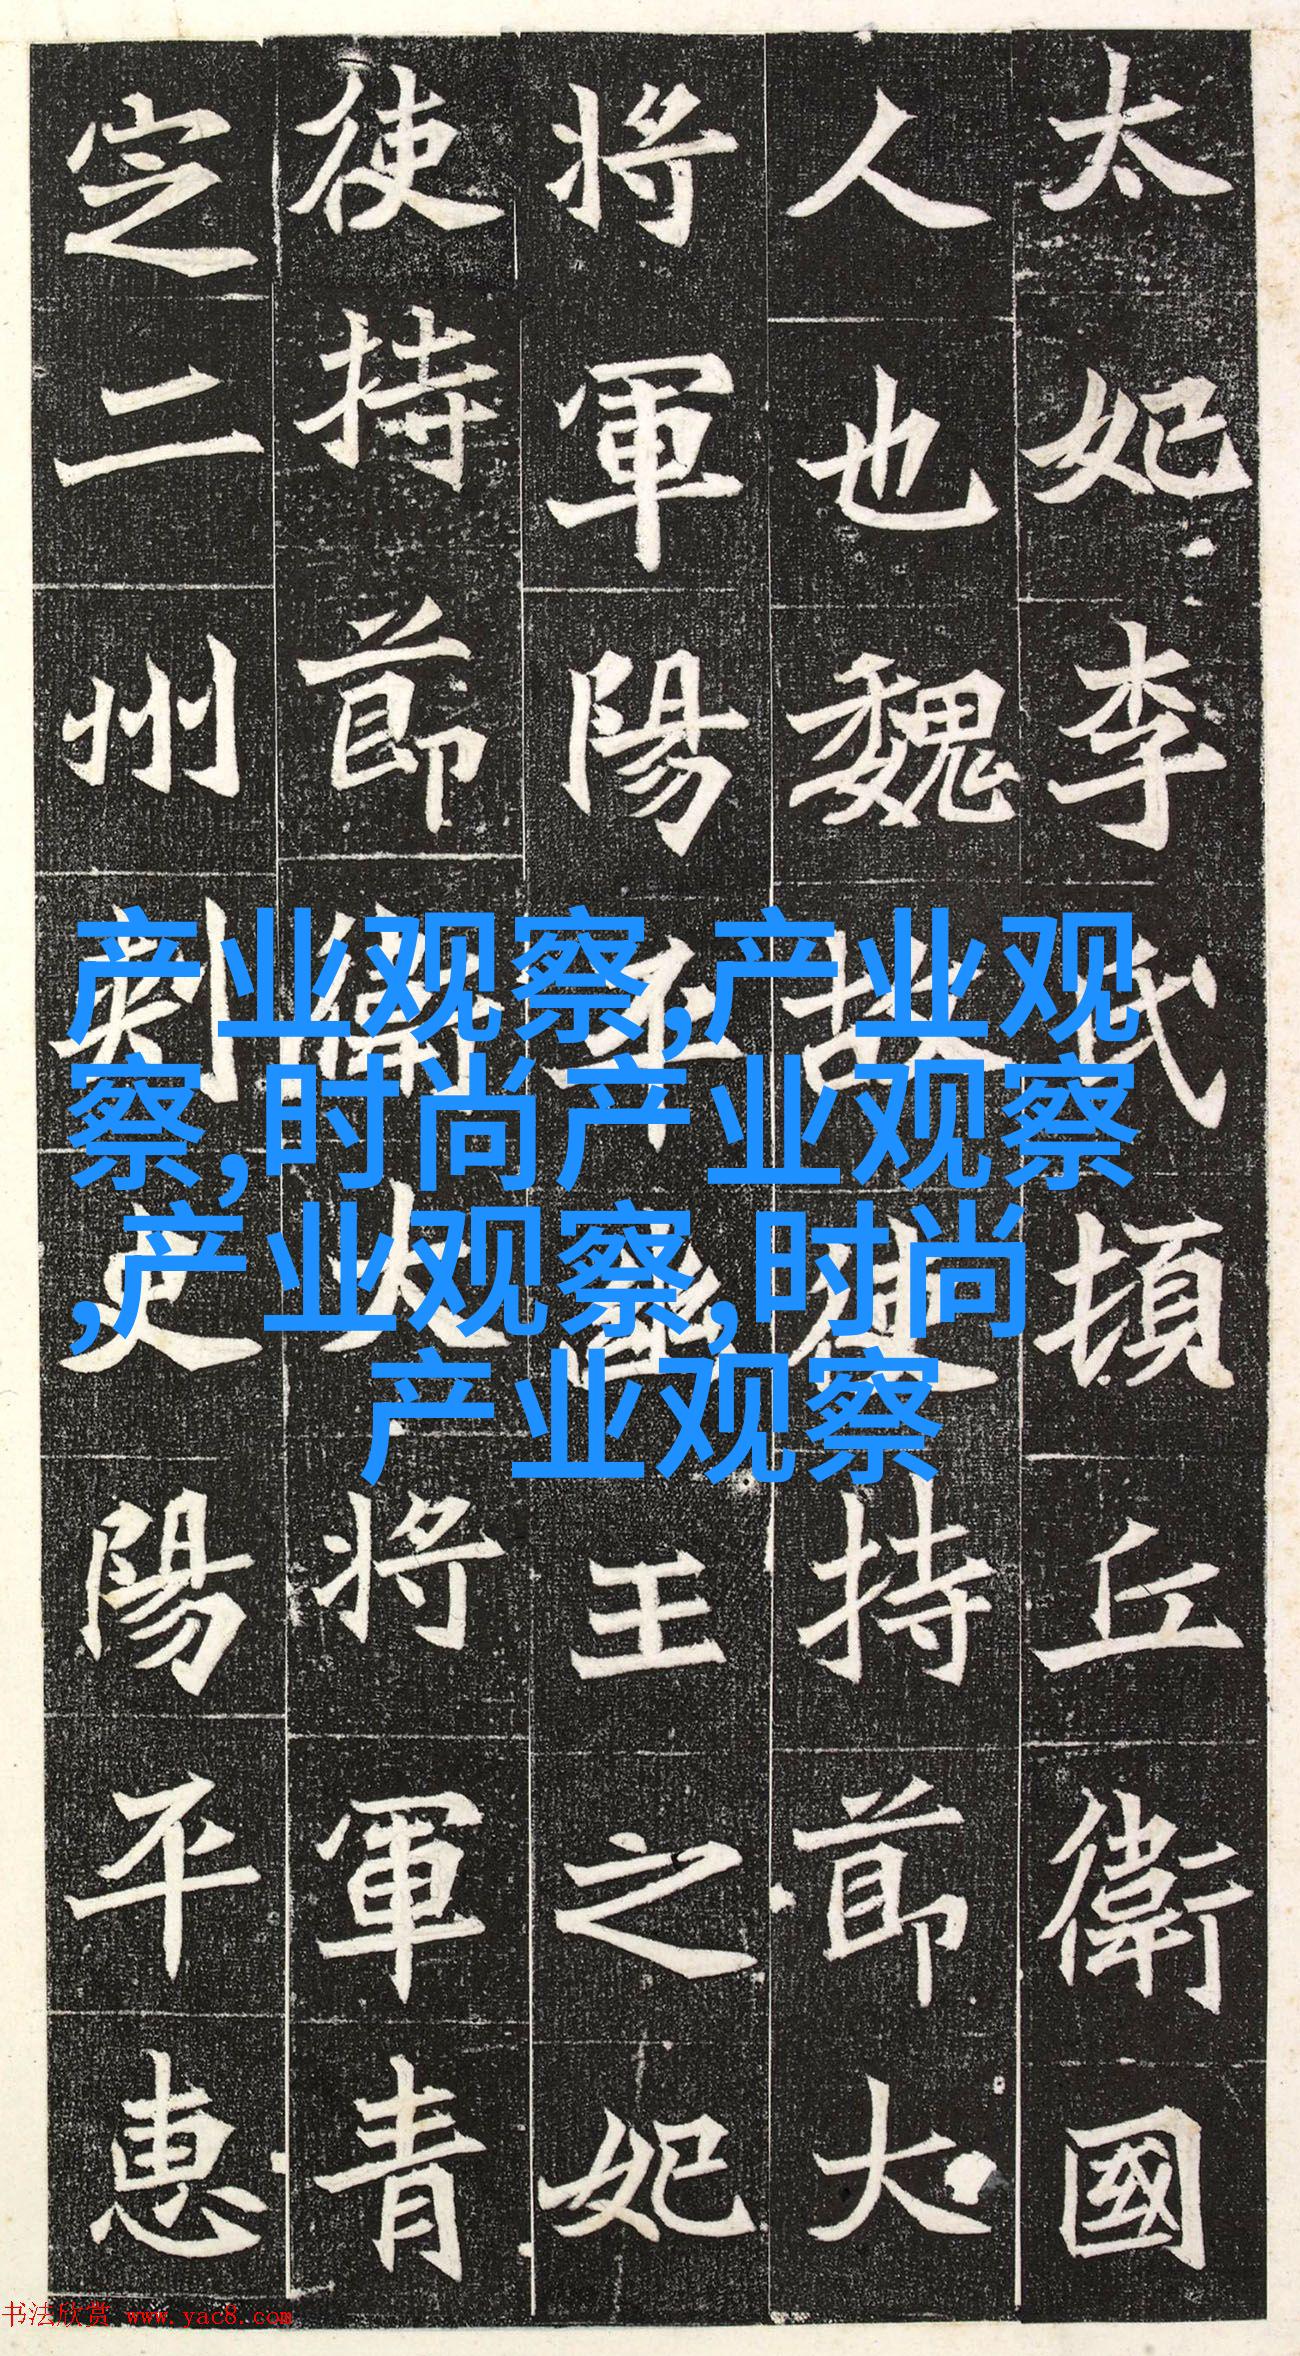 太妃李氏頓丘衛國
人也魏故使持節大
將軍陽平幽王之妃
使持節衛大將軍青
定二州刺史陽平惠
产业观察,产业观
察,时尚产业观察
,产业观察,时尚
产业观察
书法欣赏 www.yac8.com